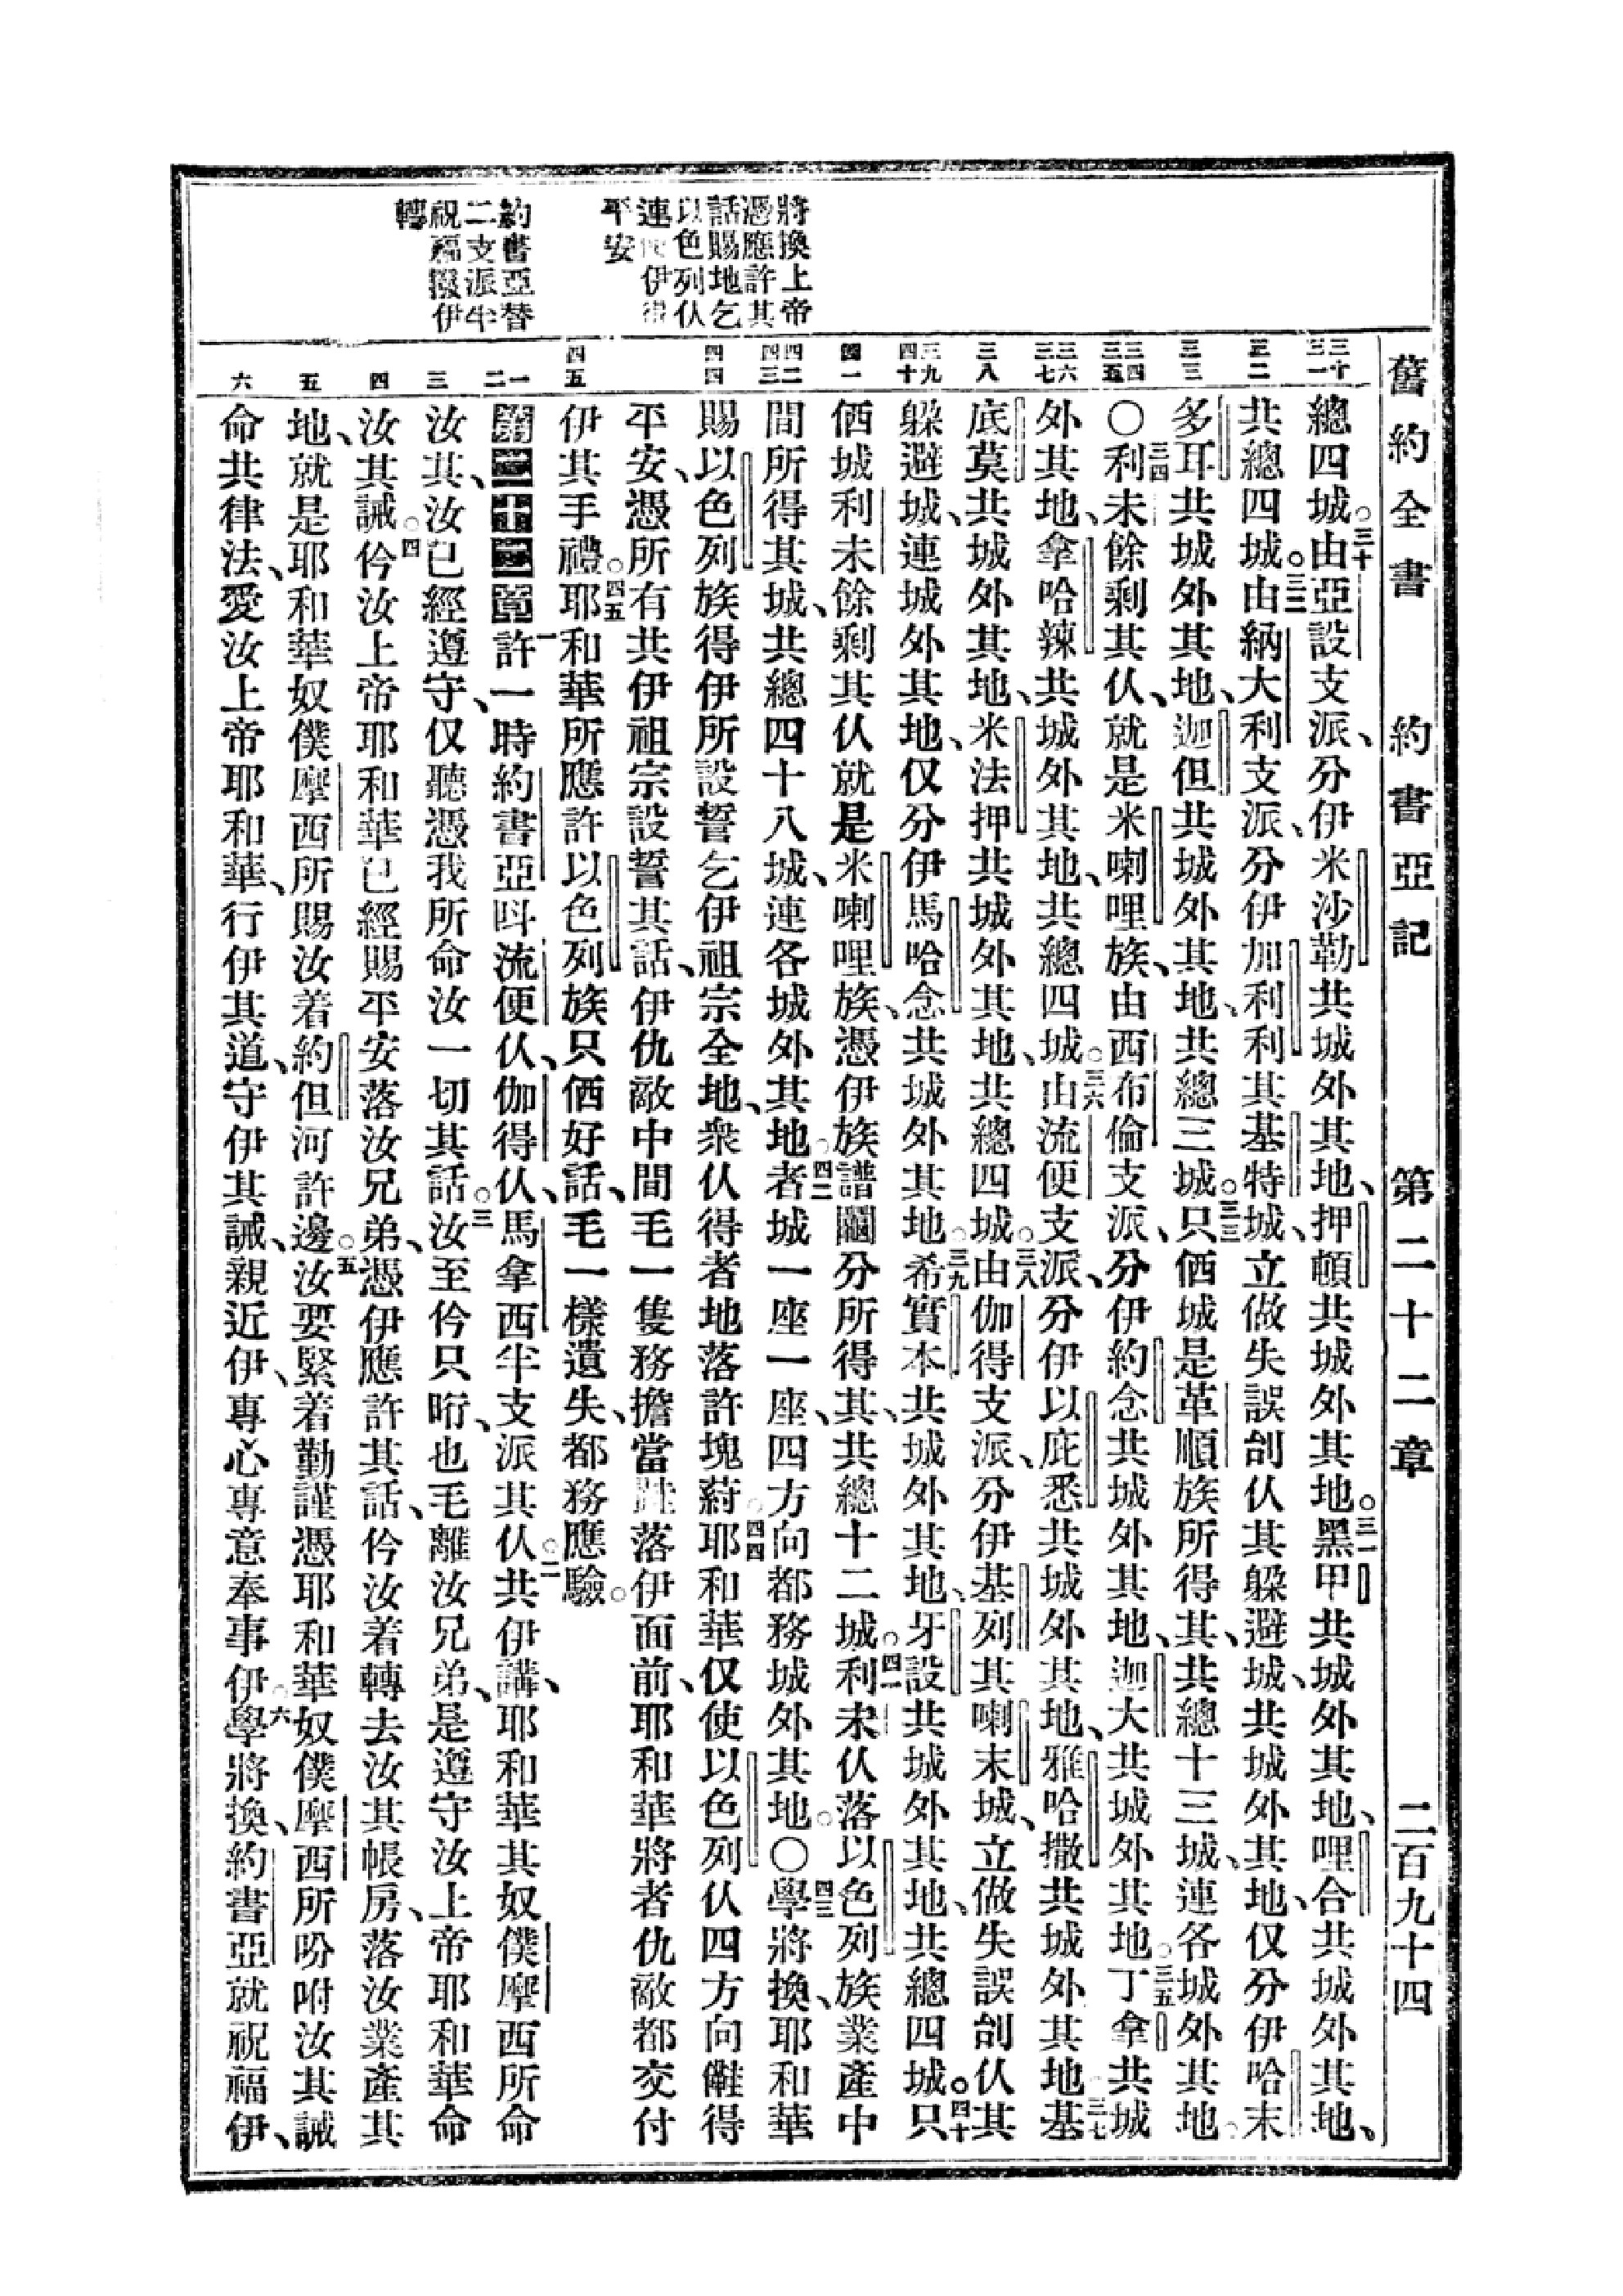 舊約全書 約書亞記 第二十二章 二百九十四
將換上帝
憑應許其
話賜地乞
以色列仈
連 伊
平安
約書亞替
二支派半
祝福撥伊
轉
三十
三一
三二
三三
三四
三五
三六
三七
三八
三九
四十
四一
四二
四三
四四
四五
一
二
三
四
五
六
總四城。三十由亞設支派、分伊米沙勒共城外其地、押頓共城外其地。三一黑甲共城外其地、哩合共城外其地、
共總四城。三二由納大利支派、分伊加利利其基特城、立做失誤刣仈其躲避城、共城外其地、仅分伊哈末
多耳共城外其地、迦但共城外其地、共總三城。三三只𠲥城是革順族所得其、共總十三城、連各城外其地。
〇三四利未餘剩其仈、就是米喇哩族、由西布倫支派、分伊約念共城外其地、迦大共城外其地。三五丁拿共城
外其地、拿哈辣共城外其地、共總四城。三六由流便支派、分伊以庇悉共城外其地、雅哈撒共城外其地。三七基
底莫共城外其地、米法押共城外其地、共總四城。三八由伽得支派、分伊基列其喇末城、立做失誤刣仈其
躲避城、連城外其地、仅分伊馬哈念共城外其地。三九希實本共城外其地、牙設共城外其地、共總四城。四十只
𠲥城利未餘剩其仈就是米喇哩族、憑伊族譜鬮分所得其、共總十二城。四一利未仈落以色列族業產中
間所得其城、共總四十八城、連各城外其地。四二者城一座一座、四方向都務城外其地。〇四三學將換、耶和華
賜以色列族得伊所設誓乞伊祖宗全地、衆仈得者地落許塊葤。四四耶和華仅使以色列仈四方向儺得
平安、憑所有共伊祖宗設誓其話、伊仇敵中間毛一隻務擔當 落伊面前、耶和華將者仇敵都交付
伊其手禮。四五耶和華所應許以色列族只𠲥好話、毛一樣遺失、都務應驗。
第二十二章一許一時約書亞呌流便仈、伽得仈、馬拿西半支派其仈。二共伊講、耶和華其奴僕摩西所命
汝其、汝已經遵守、仅聽憑我所命汝一切其話。三汝至仱只晌、也毛離汝兄弟、是遵守汝上帝耶和華命
汝其誡。四仱汝上帝耶和華已經賜平安落汝兄弟、憑伊應許其話、仱汝着轉去汝其帳房、落汝業產其
地、就是耶和華奴僕摩西所賜汝着約但河許邊。五汝要緊着勤謹憑耶和華奴僕摩西所吩咐汝其誡
命共律法、愛汝上帝耶和華、行伊其道、守伊其誡、親近伊、專心專意奉事伊。六學將換、約書亞就祝福伊、